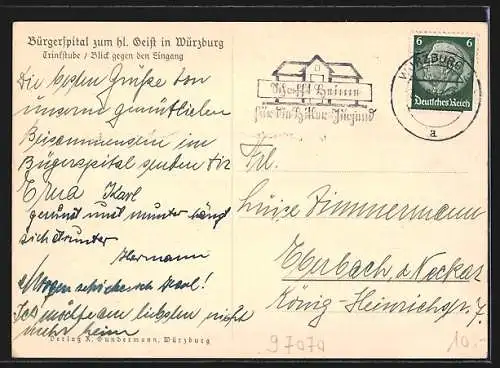 Bürgerspital zum hl. Geist in Würzburg
Trinkstube / Blick gegen den Eingang
Die besten Grüße von
unserm gemütlichen
Beisammensein im
Bügerspital senden Dir
Erna Karl
gesund und munter
sich drunter
Hermann
Morgen
Ich möchte am liebsten nicht
mehr heim
Verlag K. Gundermann, Würzburg
Schafft Heime
für die Hitler-Jugend
WÜRZBURG
a
6 6
Deutsches Reich
Frl.
Luise Zimmermann
Eberbach, a Neckar
König-Heinrichstr. 7.
97070
10.-